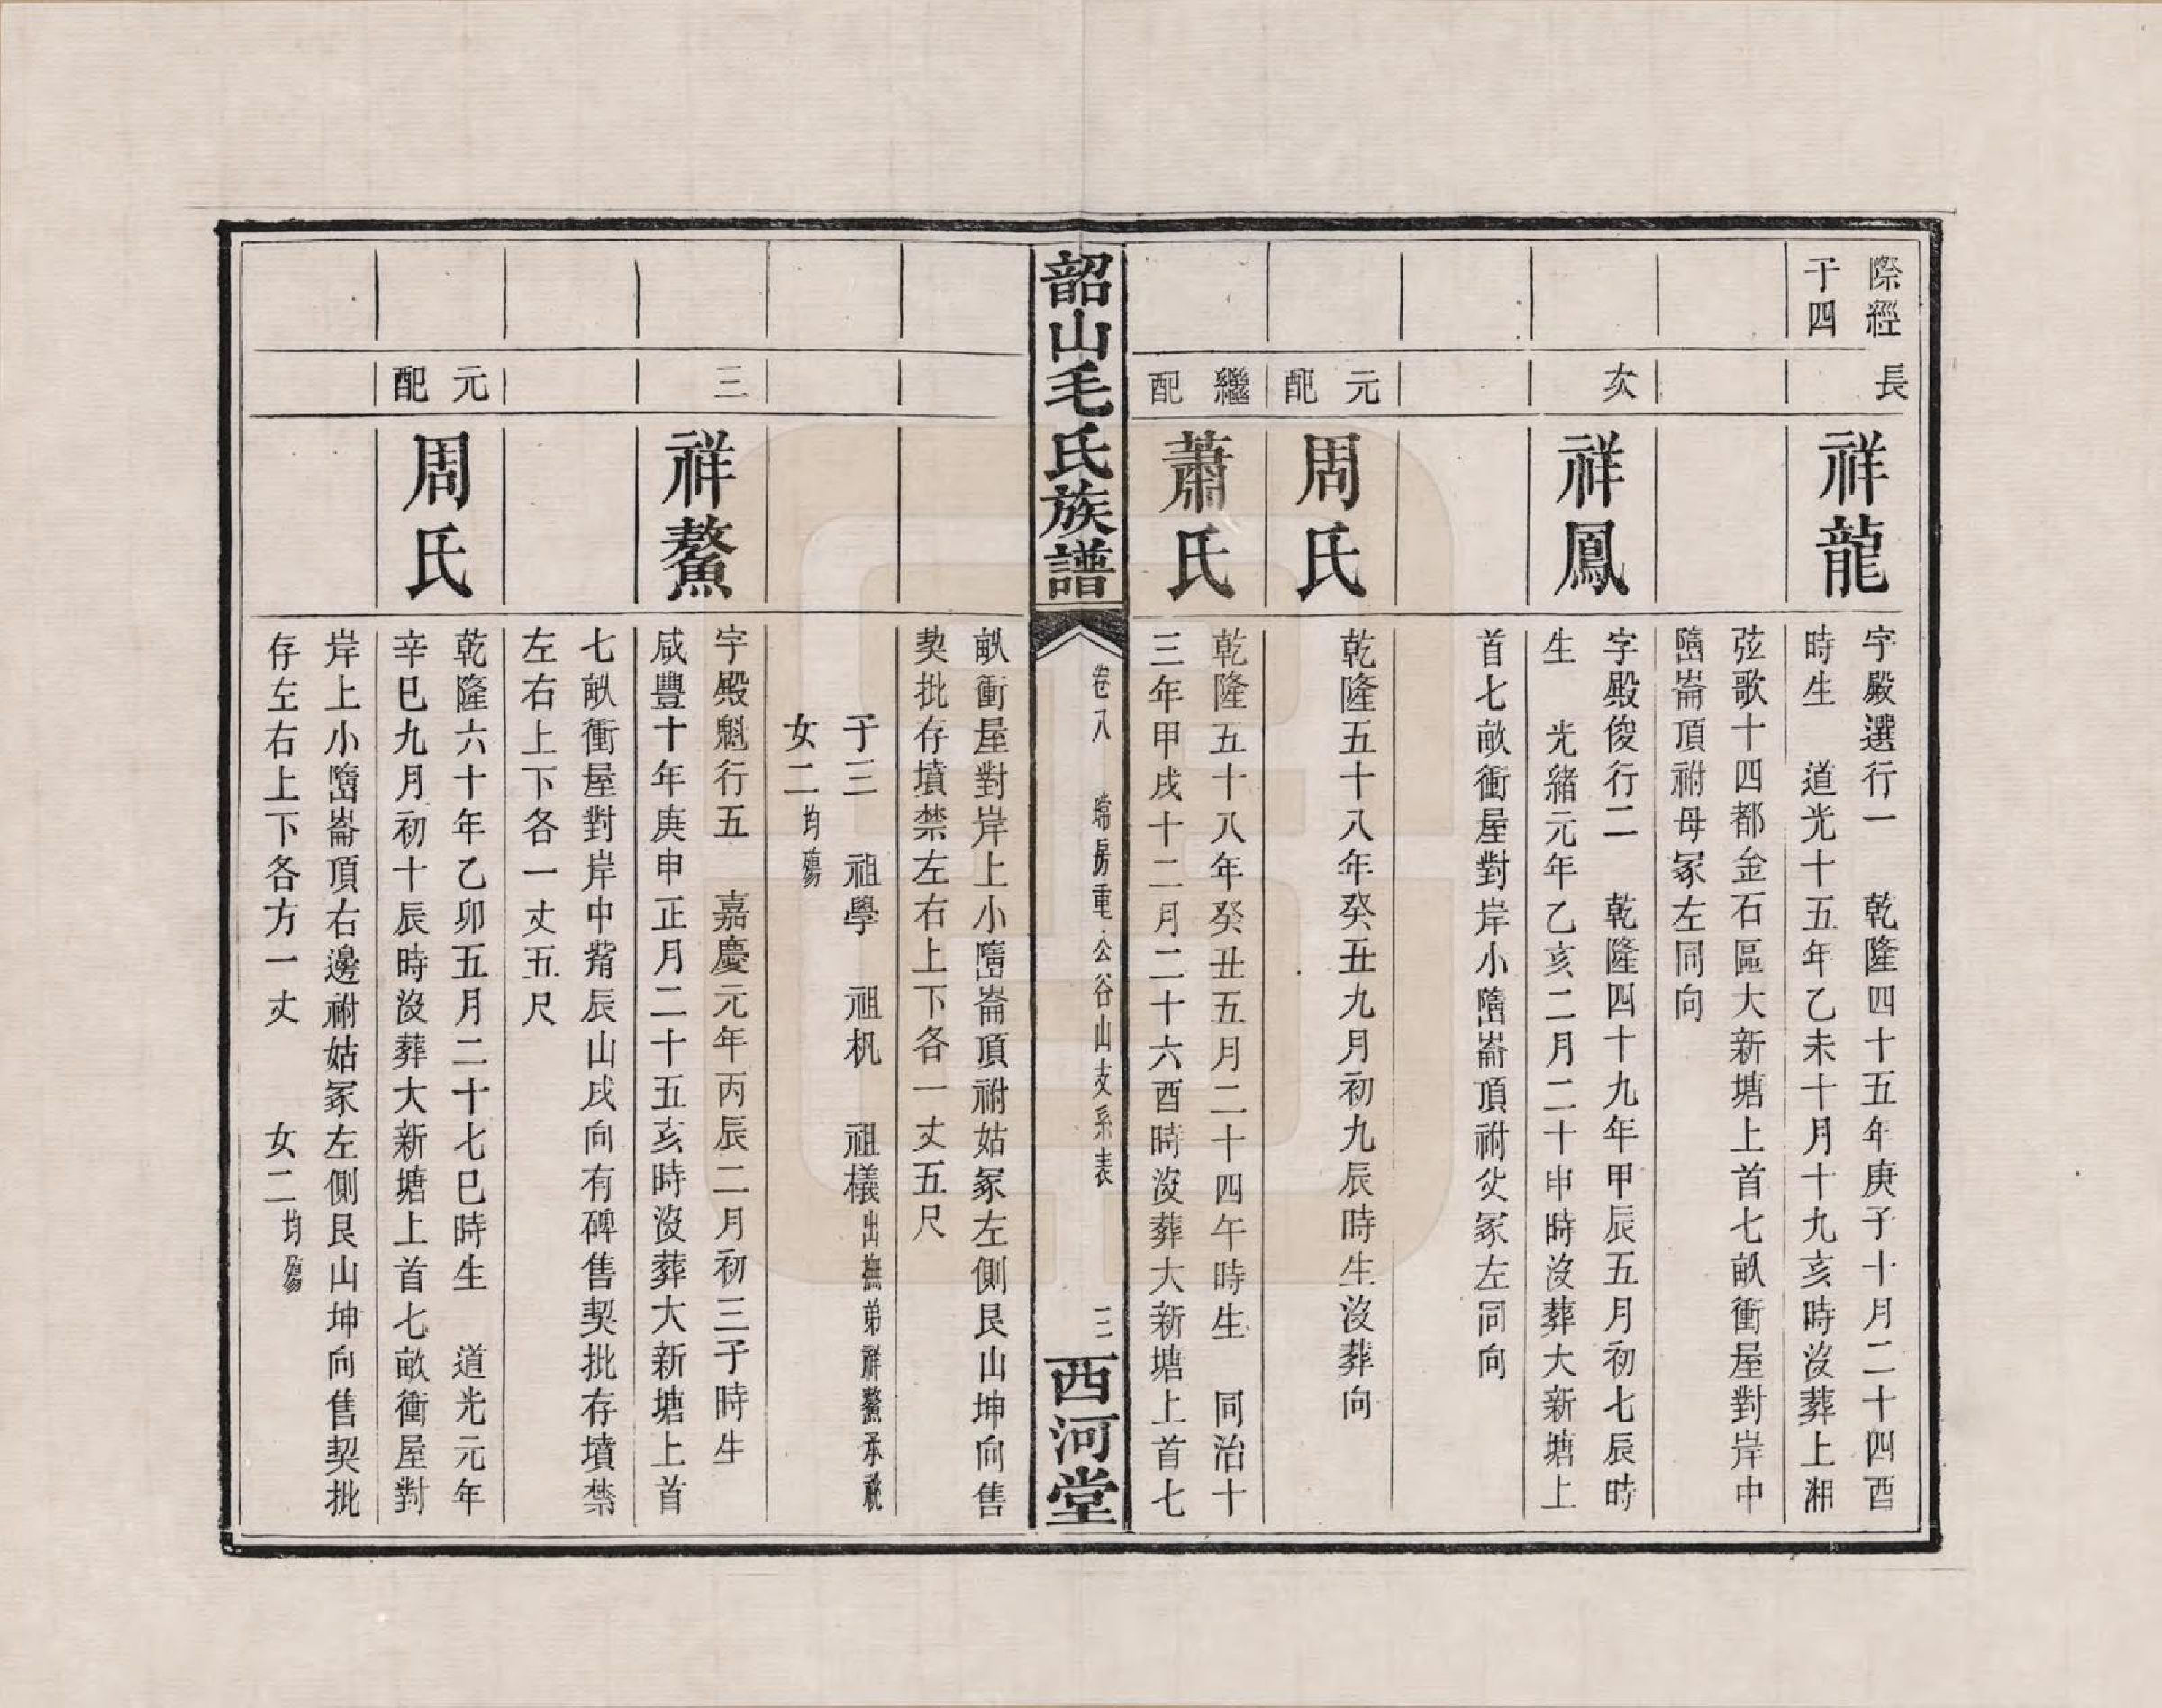 際經
子四
長
祥龍
字殿選行一　乾隆四十五年庚子十月二十四酉
時生　道光十五年乙未十月十九亥時沒葬上湘
弦歌十四都金石區大新塘上首七畝衝屋對岸中
嶞崙頂祔母冢左同向
次
祥鳳
字殿俊行二　乾隆四十九年甲辰五月初七辰時
生　光緒元年乙亥二月二十申時沒葬大新塘上
首七畝衝屋對岸小嶞崙頂祔父冢左同向
元配
周氏
乾隆五十八年癸丑九月初九辰時生沒葬向
繼配
蕭氏
乾隆五十八年癸丑五月二十四午時生　同治十
三年甲戌十二月二十六酉時沒葬大新塘上首七
韶山毛氏族譜
卷八　端房重公谷山支系表
三
西河堂
畝衝屋對岸上小嶞崙頂祔姑冢左側艮山坤向售
契批存墳禁左右上下各一丈五尺
子三　祖學　祖机　祖檥出撫弟祥鰲承祧
女二均殤
三
祥鰲
字殿魁行五　嘉慶元年丙辰二月初三子時生
咸豐十年庚申正月二十五亥時沒葬大新塘上首
七畝衝屋對岸中嶞辰山戌向有碑售契批存墳禁
左右上下各一丈五尺
元配
周氏
乾隆六十年乙卯五月二十七巳時生　道光元年
辛巳九月初十辰時沒葬大新塘上首七畝衝屋對
岸上小嶞崙頂右邊祔姑冢左側艮山坤向售契批
存左右上下各方一丈　女二均殤